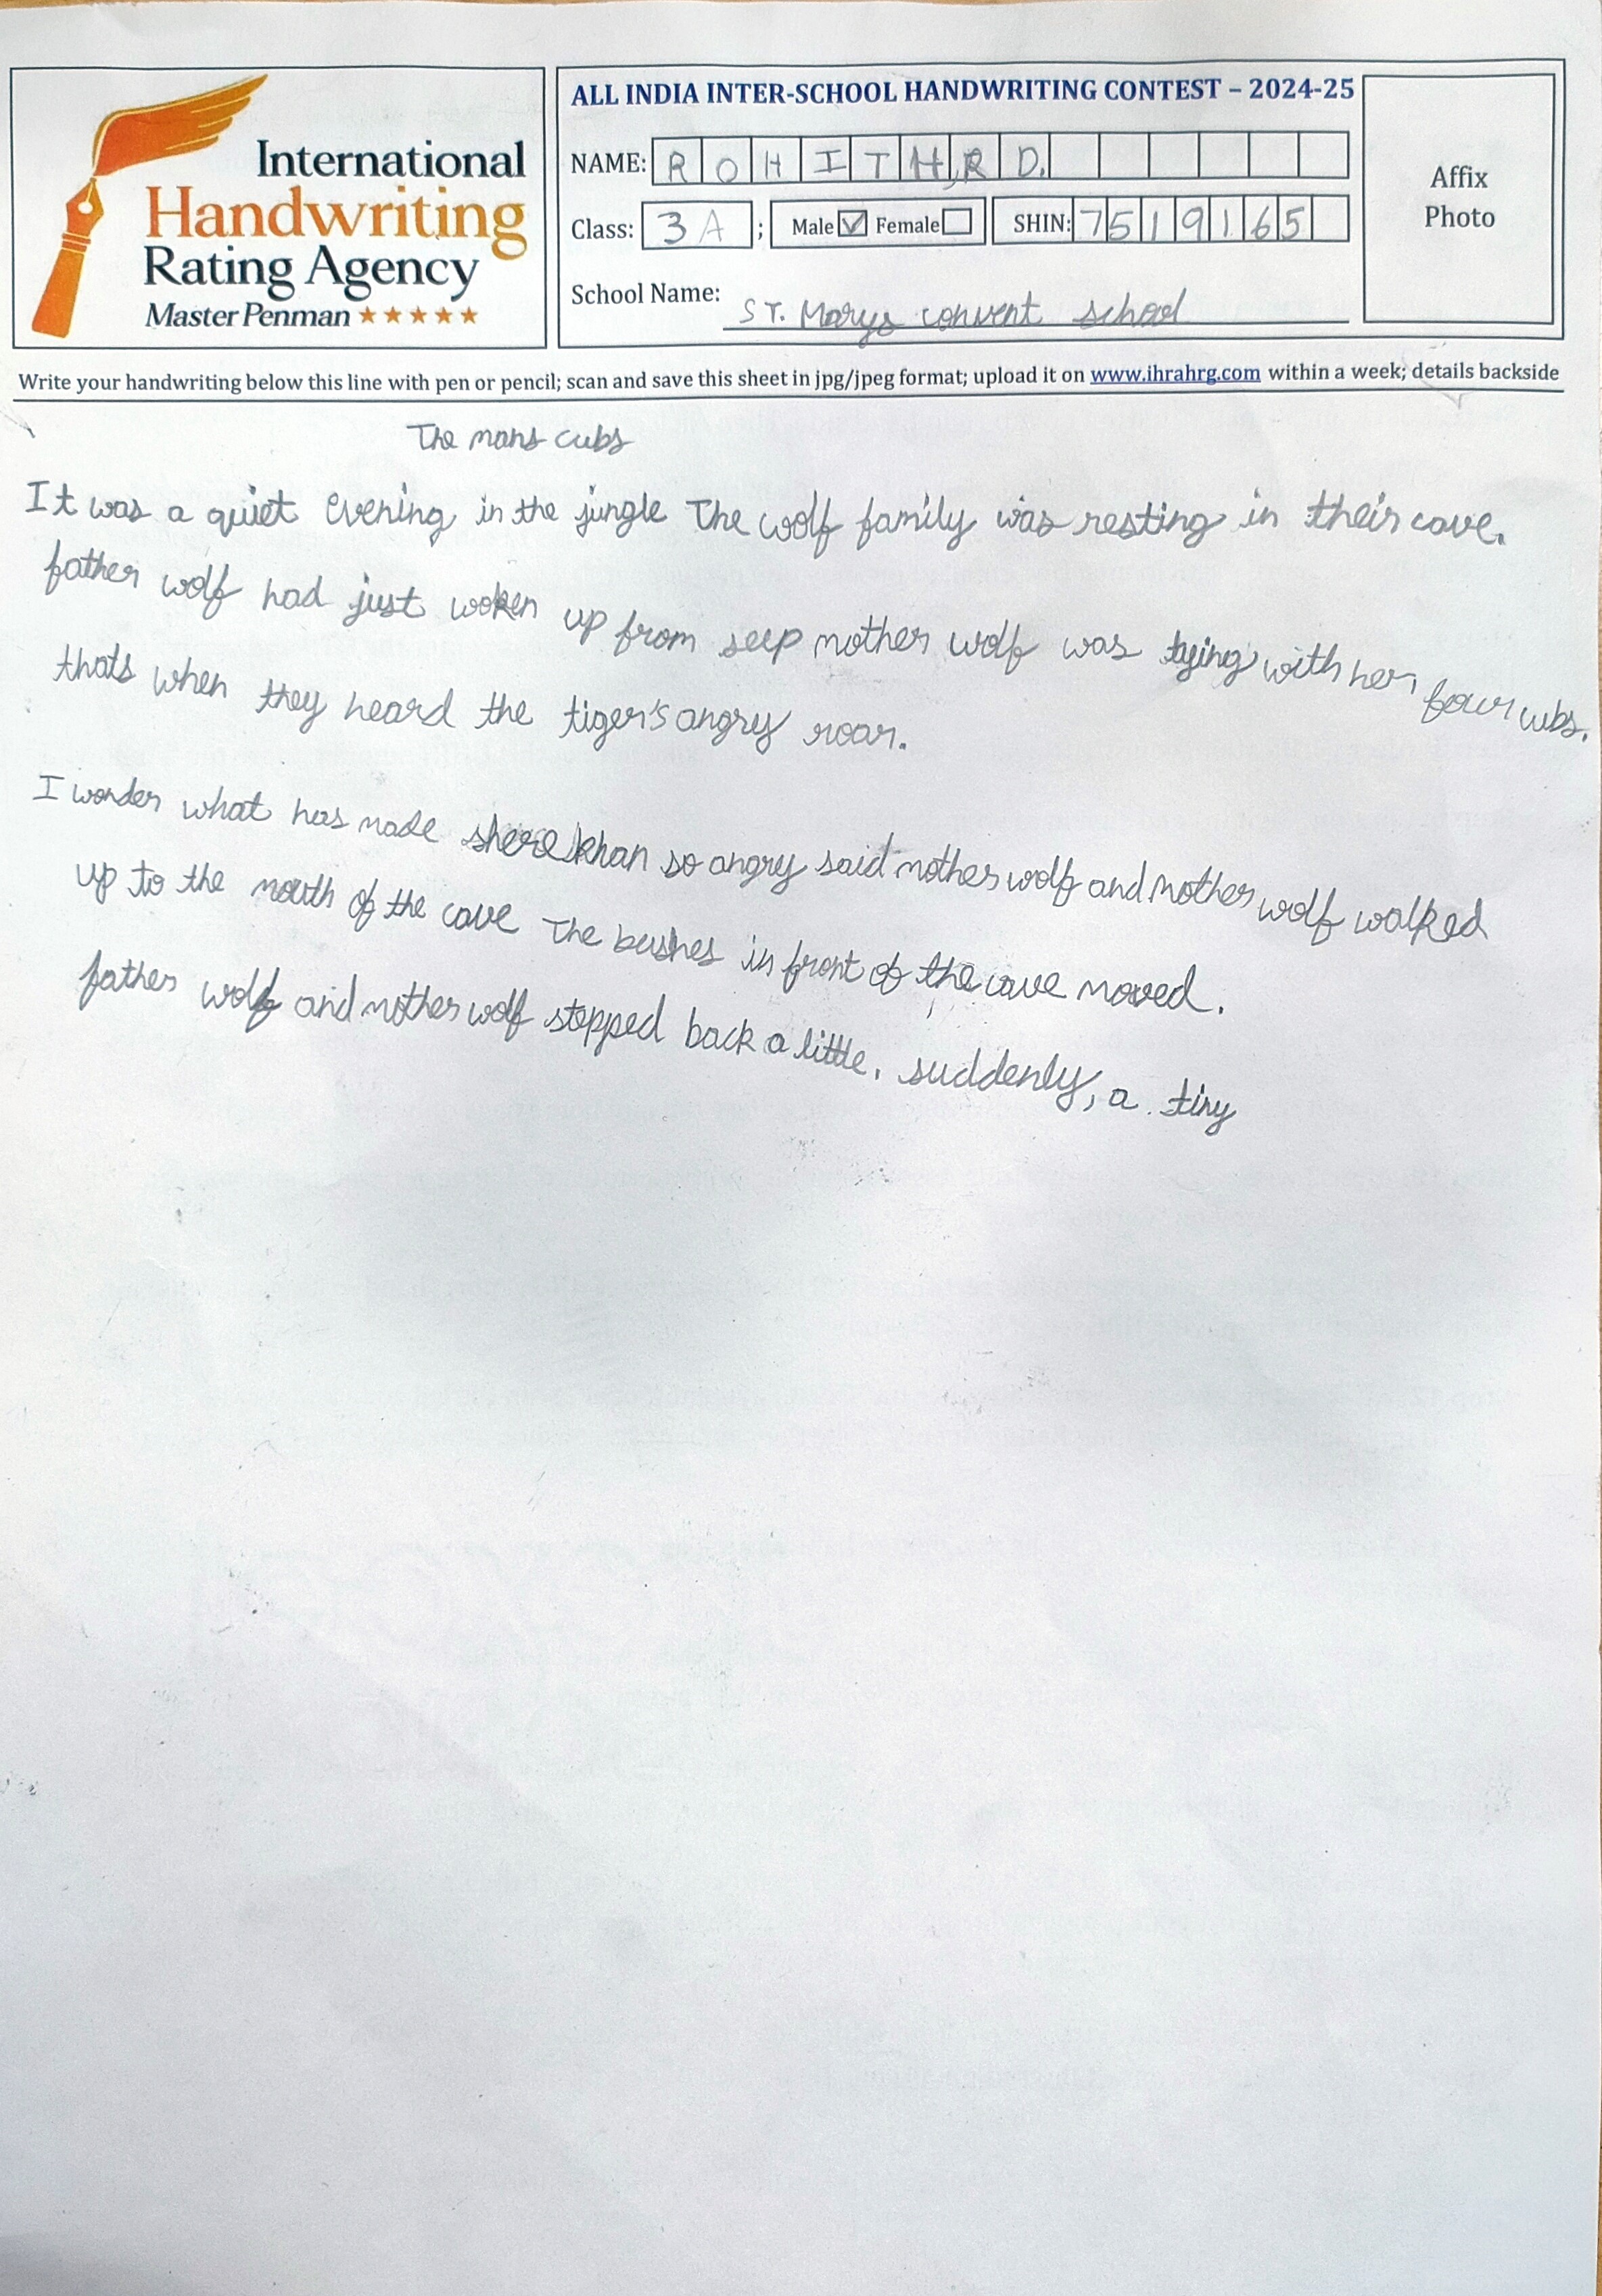 International
Handwriting
Rating Agency
Master Penman
ALL INDIA INTER-SCHOOL HANDWRITING CONTEST – 2024-25
NAME: ROHITH,RD.
Class: 3 A ; Male Female SHIN: 7519165
School Name: ST. Marys convent school
Affix
Photo
Write your handwriting below this line with pen or pencil; scan and save this sheet in jpg/jpeg format; upload it on www.ihrahrg.com within a week; details backside
The mans cubs
It was a quiet Evening in the jungle The woolf family was resting in their cave.
father wolf had just woken up from seep mother wolf was tying with her four cubs.
thats when they heard the tiger's angry roar.
I wonder what has made shere khan so angry said mother wolf and Mother wolf walked
up to the mouth of the cave The bushes in front of the cave moved.
father wolf and mother wolf stopped back a little, suddenly, a tiny